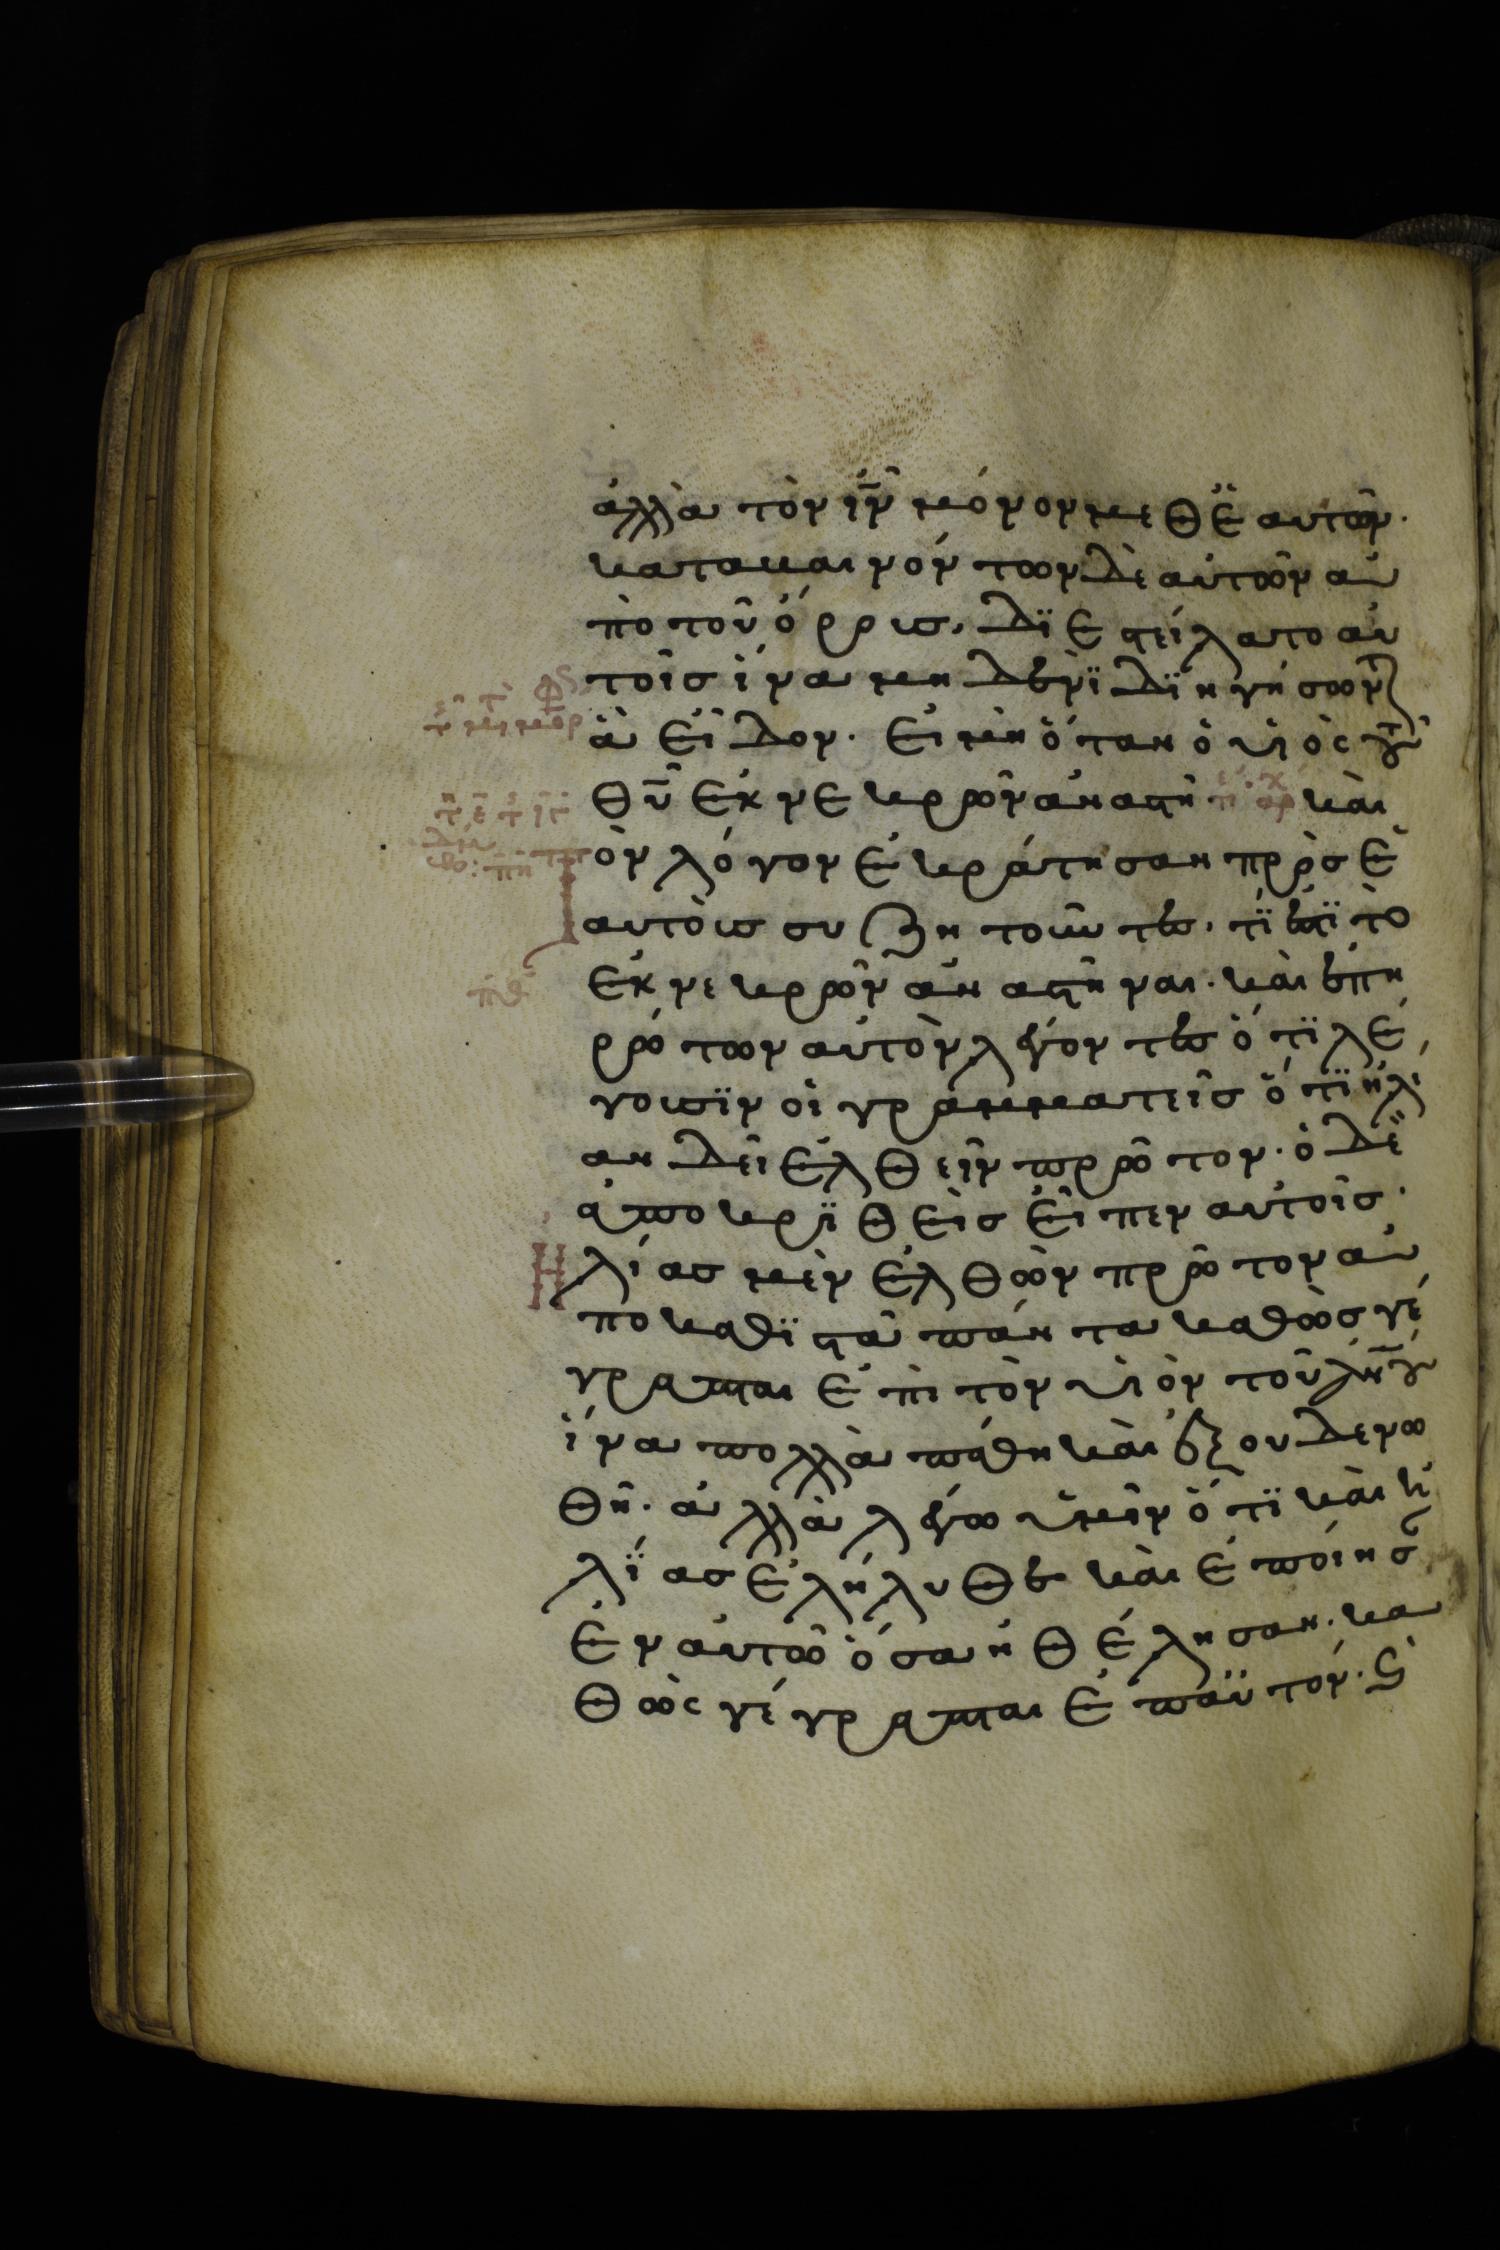 ἀλλὰ τὸν ιν̅ μόνον μεθ ἑ αυτῶν·
καταβαινόντων δὲ αὐτῶν ἀ
πὸ τοῦ ὄρρους, διεστείλατο αὐ
τοῖς ἵνα μηδενὶ διηγήσων
ἃ εἶδον· εἰ μὴ ὅταν ὁ υἱὸς τοῦ
θυ̅ ἐκ νεκρρῶν ἀναστῆ καὶ
τὸν λόγον ἐκράτησαν πρρὸς ἑ
αυτοὺς συζητοῦντες, τί ἐστὶ τὸ
ἐκ νεκρρῶν ἀναστῆναι· καὶ ἐπη
ρρώτων αὐτὸν λέγοντες ὅτι λέ
γουσιν οἱ γραμματεῖς ὅτι ἠλί
αν δεῖ ἐλθεῖν πρρῶτον· ὁ δὲ
ἀποκριθεὶς εἶπεν αὐτοῖς·
Ἠλίας μὲν ἐλθὼν πρρῶτον ἀ
ποκαθιστᾶ πάντα καθὼς γέ
γραπται ἐπὶ τὸν υἱὸν τοῦ ἀνου̅
ἵνα πολλὰ πάθη καὶ ἐξουδενω
θῆ· ἀλλὰ λέγω ὑμῖν ὅτι καὶ ἠ
λίας ἐλήλυθεν καὶ ἐποίησ
ἐν αὐτῶ ὅσα ἠθέλησαν· κα
θὼς γέγραπται ἐπ αὐτόν· ϛ